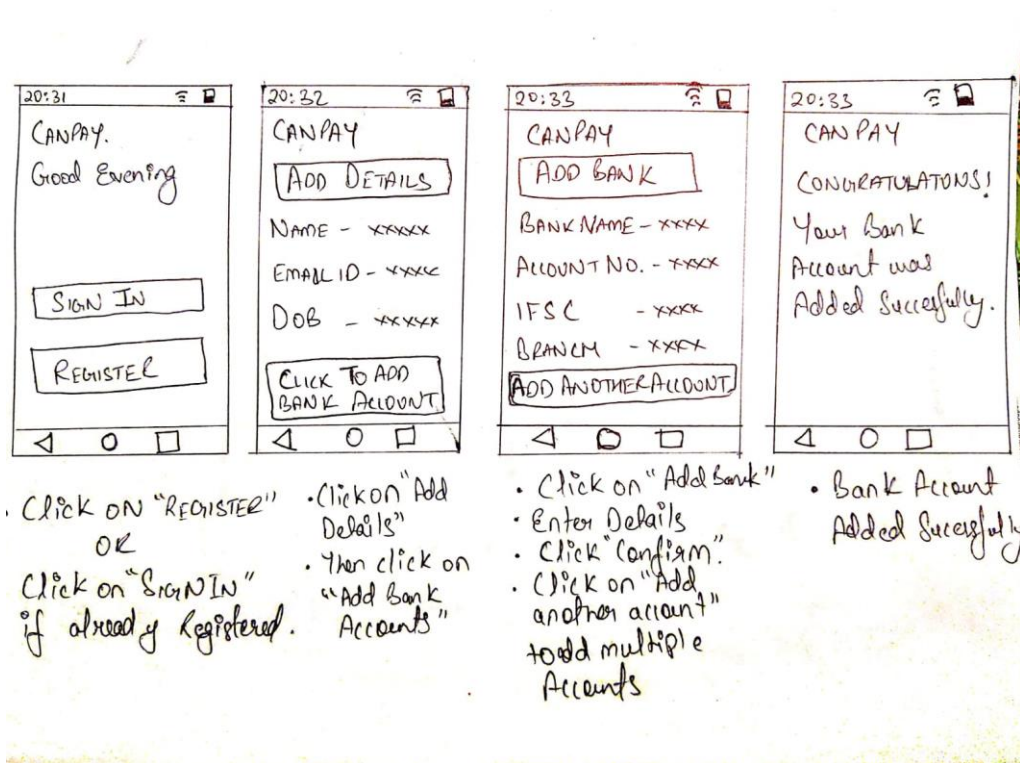 20:31
CANPAY.
Good Evening
SIGN IN
REGISTER
· Click ON "REGISTER"
OR
Click on "SIGN IN"
if already Registered.
20:32
CANPAY
ADD DETAILS
NAME - xxxxx
EMAIL ID - xxxx
DOB - xxxxx
CLICK TO ADD
BANK ACCOUNT
· Click on "Add
Details"
· Then click on
"Add Bank
Accounts"
20:33
CANPAY
ADD BANK
BANK NAME - xxxx
ACCOUNT NO. - xxxx
IFSC - xxxx
BRANCH - xxxx
ADD ANOTHER ACCOUNT
· Click on "Add Bank"
· Enter Details
· Click "Confirm".
· Click on "Add
another account"
to add multiple
Accounts
20:33
CANPAY
CONGRATULATONS!
Your Bank
Account was
Added Succesfully.
· Bank Account
Added Sucessfully